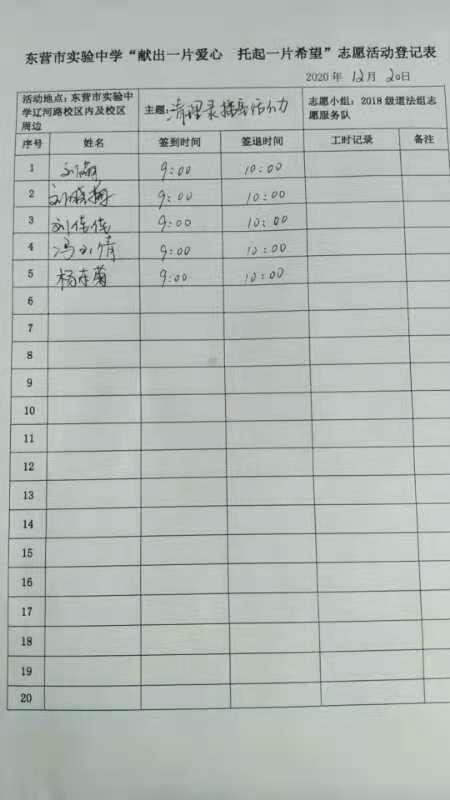 东营市实验中学“献出一片爱心 托起一片希望”志愿活动登记表
2020 年 12月 20日
活动地点：东营市实验中学辽河路校区内及校区周边 主题：清理录播室 志愿小组：2018 级道法组志愿服务队
序号 姓名 签到时间 签退时间 工时记录 备注
1 刘 9:00 10:00
2 刘晓梅 9:00 10:00
3 刘佳佳 9:00 10:00
4 冯刘倩 9:00 10:00
5 杨东菊 9:00 10:00
6
7
8
9
10
11
12
13
14
15
16
17
18
19
20